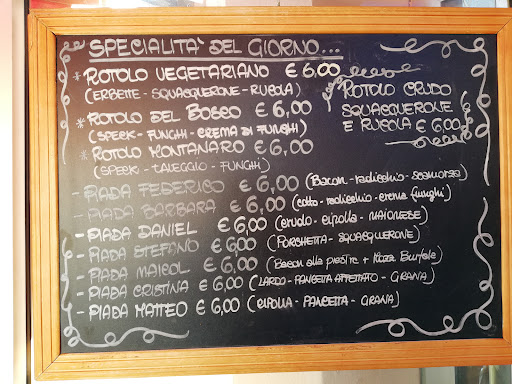 SPECIALITA' DEL GIORNO...
* ROTOLO VEGETARIANO € 6,00
(ERBETTE - SQUACQUERONE - RUCOLA)
* ROTOLO DEL BOSCO € 6,00
(SPECK - FUNGHI - CREMA DI FUNGHI)
* ROTOLO MONTANARO € 6,00
(SPECK - TALEGGIO - FUNGHI)
ROTOLO CRUDO
SQUACQUERONE
E RUCOLA € 6,00
- PIADA FEDERICO € 6,00 (Bacon - radicchio - scamorza)
- PIADA BARBARA € 6,00 (cotto - radicchio - crema funghi)
- PIADA DANIEL € 6,00 (crudo - cipolla - MAIONESE)
- PIADA STEFANO € 6,00 (PORCHETTA - SQUACQUERONE)
- PIADA MAICOL € 6,00 (Bacon alla piastra + Mozz. Bufala)
- PIADA CRISTINA € 6,00 (LARDO - PANCETTA AFFETTATO - GRANA)
- PIADA MATTEO € 6,00 (CIPOLLA - PANCETTA - GRANA)